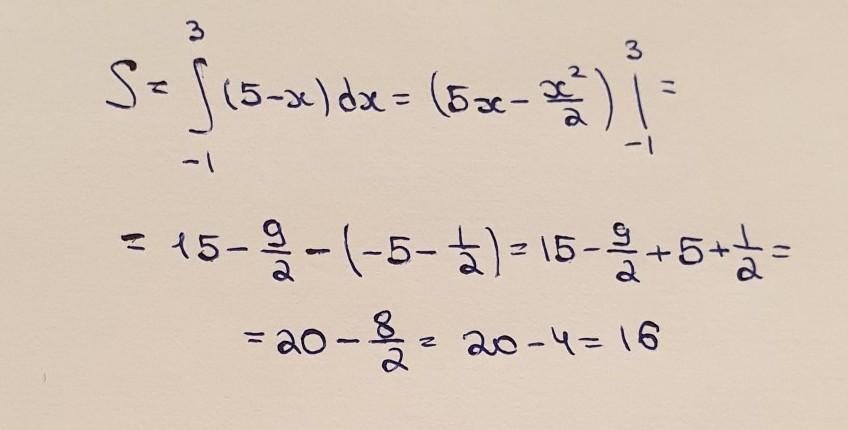 S = ∫_{-1}^{3} (5-x) dx = (5x - x²/2) |_{-1}^{3} =
= 15 - 9/2 - (-5 - 1/2) = 15 - 9/2 + 5 + 1/2 =
= 20 - 8/2 = 20 - 4 = 16